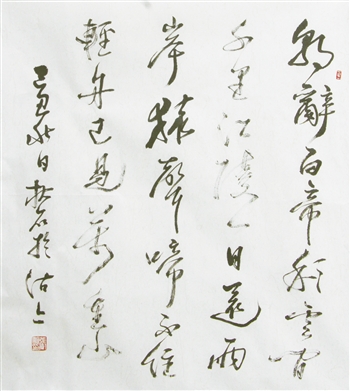 朝辭白帝彩雲間
千里江陵一日還兩
岸猿聲啼不住
輕舟已過萬重山
己丑秋日石於沽上